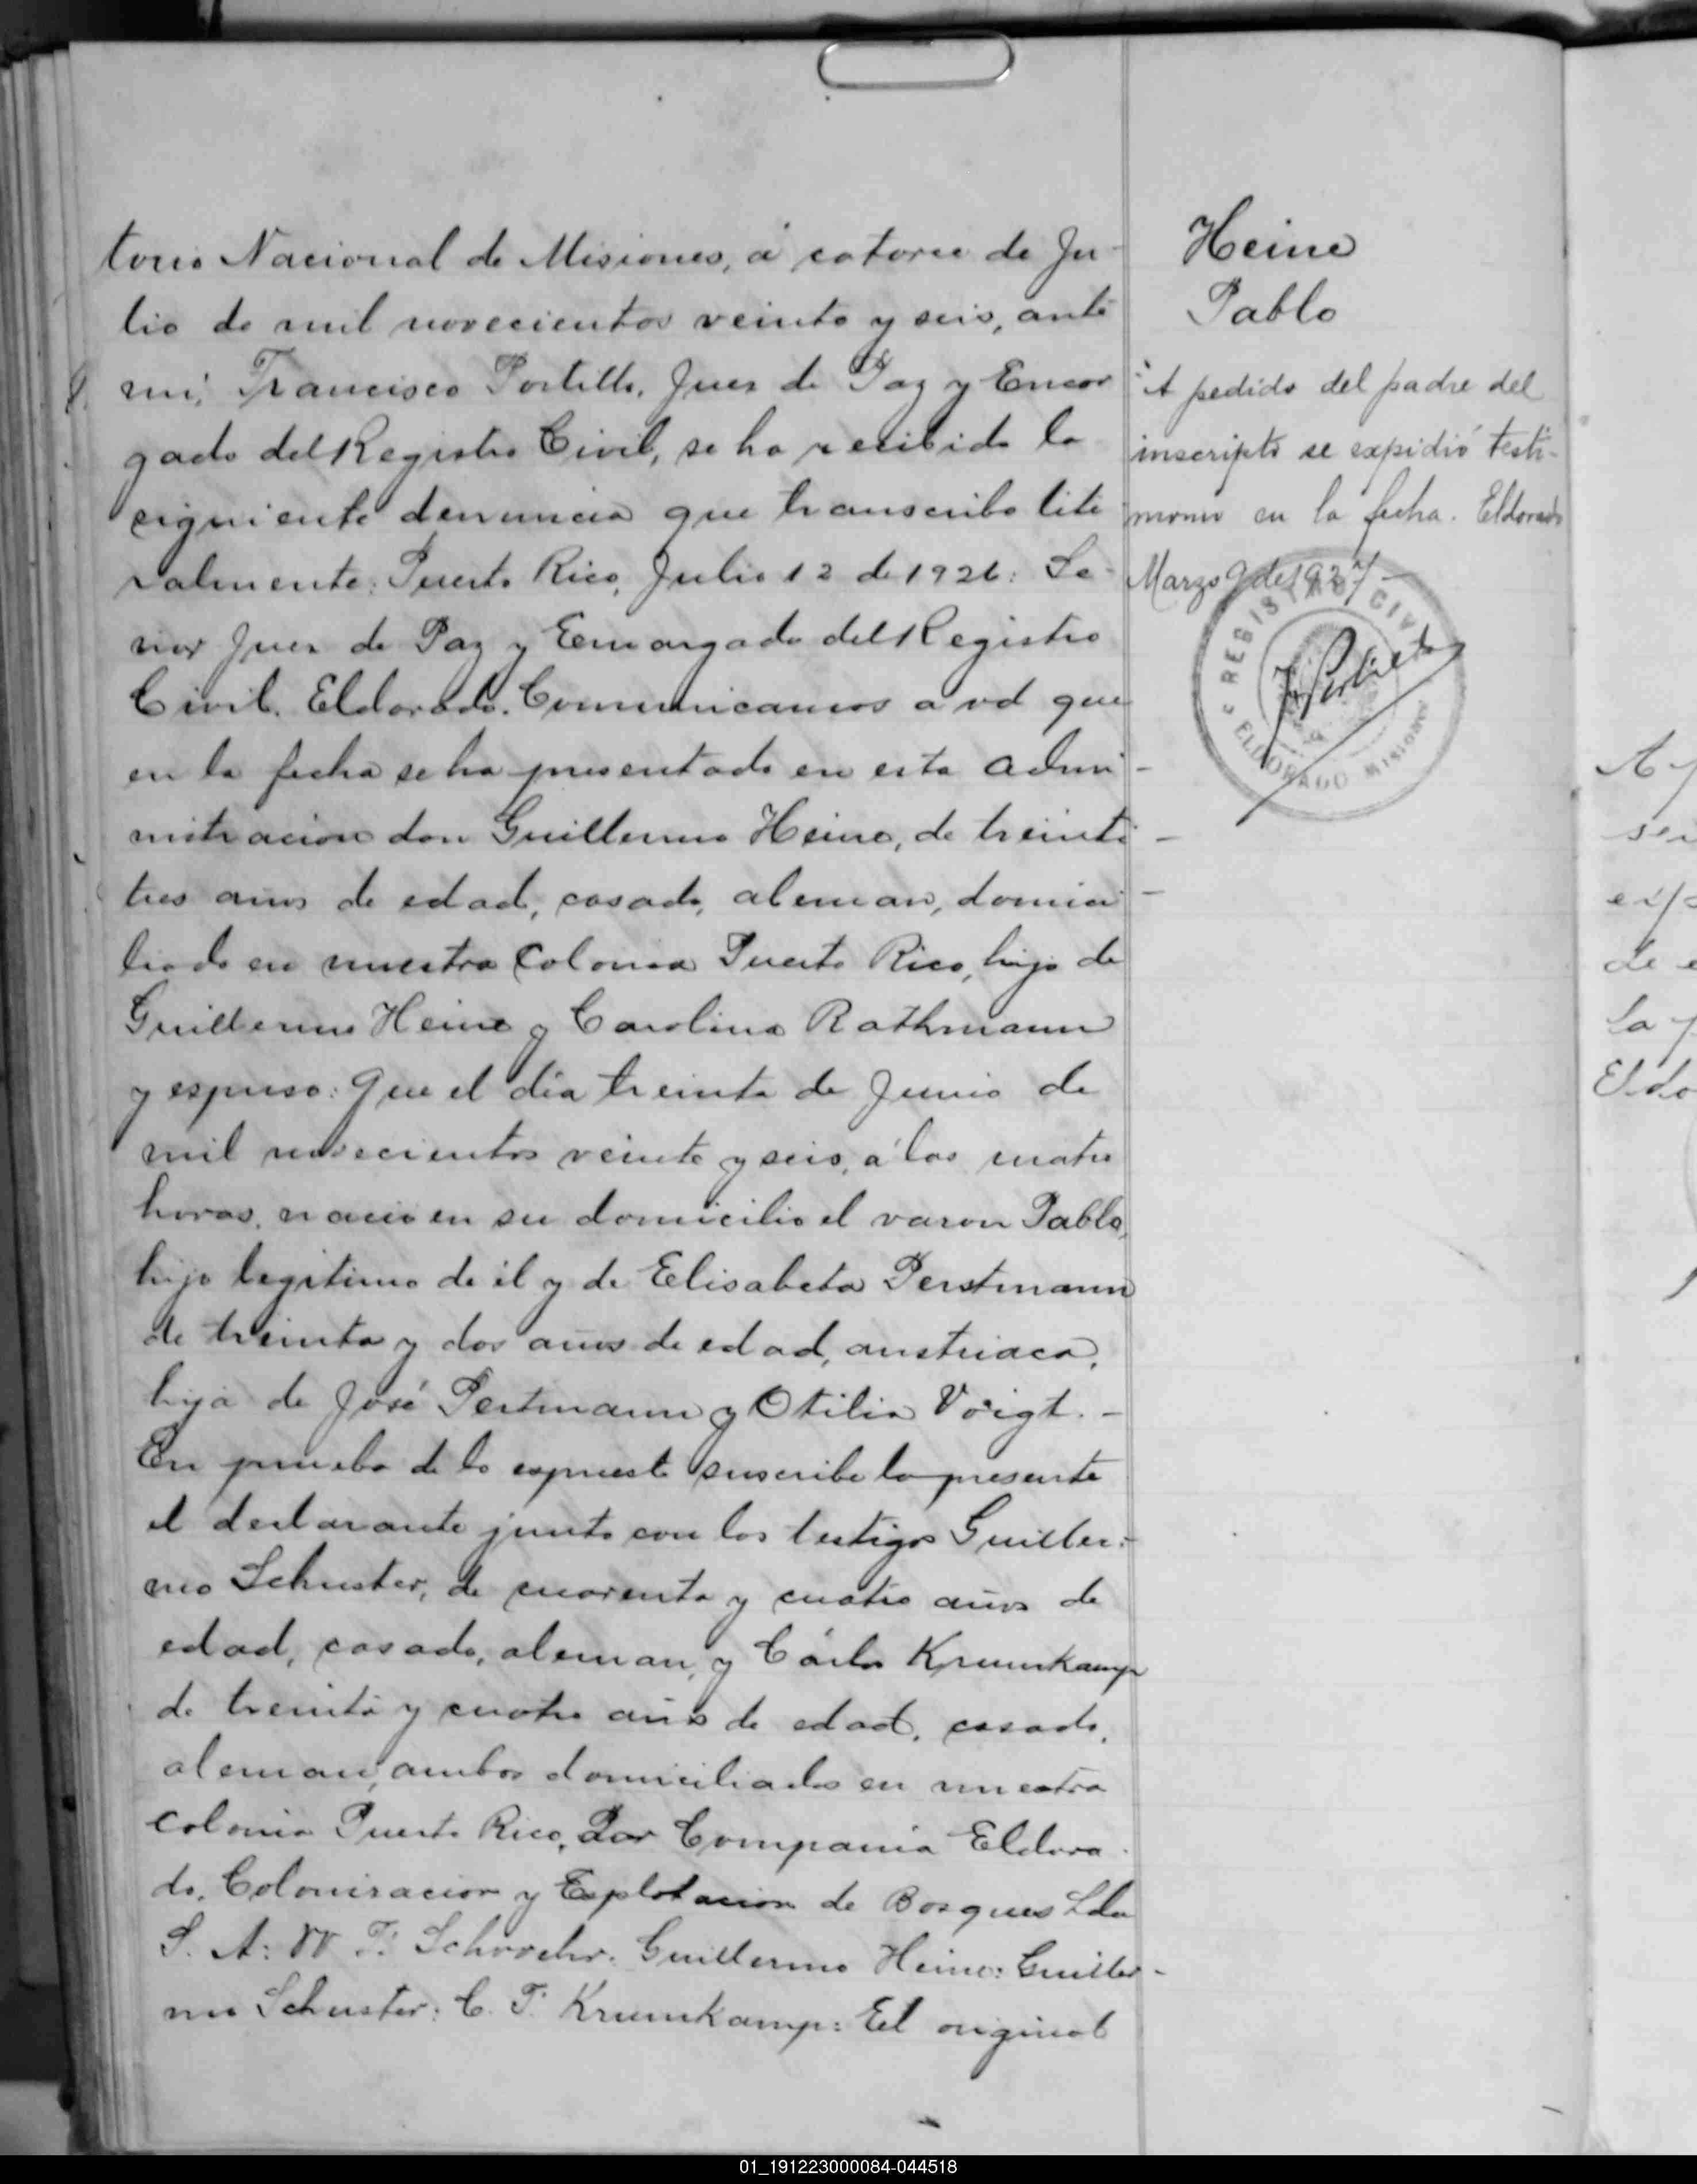 torio Nacional de Misiones, á catorce de Ju-
lio de mil novecientos veinte y seis, ante
mi, Francisco Portillo, Juez de Paz y Encar
gado del Registro Civil, se ha recibido la
siguiente denuncia que transcribo lite
ralmente: Puerto Rico, Julio 12 de 1926: Se-
ñor Juez de Paz y Encargado del Registro
Civil. Eldorado. Comunicamos a vd que
en la fecha se ha presentado en esta Admi-
nistracion don Guillermo Heine, de treinti-
tres años de edad, casado, aleman, domici-
liado en nuestra Colonia Puerto Rico, hijo de
Guillermo Heine y Carolina Rathmann
y espuso: Que el dia treinta de Junio de
mil novecientos veinte y seis, á las cuatro
horas, nació en su domicilio el varon Pablo,
hijo legitimo de él y de Elisabeta Perstmann
de treinta y dos años de edad, austriaca,
hija de José Pertmann y Otilia Voigt. -
En prueba de lo expuesto suscribe la presente
el declarante junto con los testigos Guiller-
mo Schuster, de cuarenta y cuatro años de
edad, casado, aleman, y Cárlos Krumkamp
de treinta y cuatro años de edad, casado,
aleman, ambos domiciliados en nuestra
colonia Puerto Rico, Por Compania Eldora-
do, Colonizacion y Esplotacion de Bosques Lda
S. A: W. F. Guillermo Heine: Guiller-
mo Schuster: C. F. Krumkamp: El original
Heine
Pablo
A pedido del padre del
inscripto se expidió testi-
monio en la fecha. Eldorado
Marzo 9 de 1927-
REGISTRO CIVIL
ELDORADO MISIONES
F. Portillo
A
se
exp
de e
la f
Eldo
01_191223000084-044518